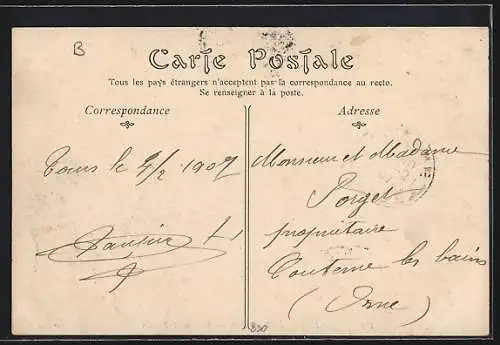 B
Carte Postale
Tous les pays étrangers n'acceptent pas la correspondance au recto.
Se renseigner à la poste.
Correspondance
Adresse
Tours le 4/2 1907
Monsieur et Madame
Forget
propriétaire
Couterne les bains
(Orne)